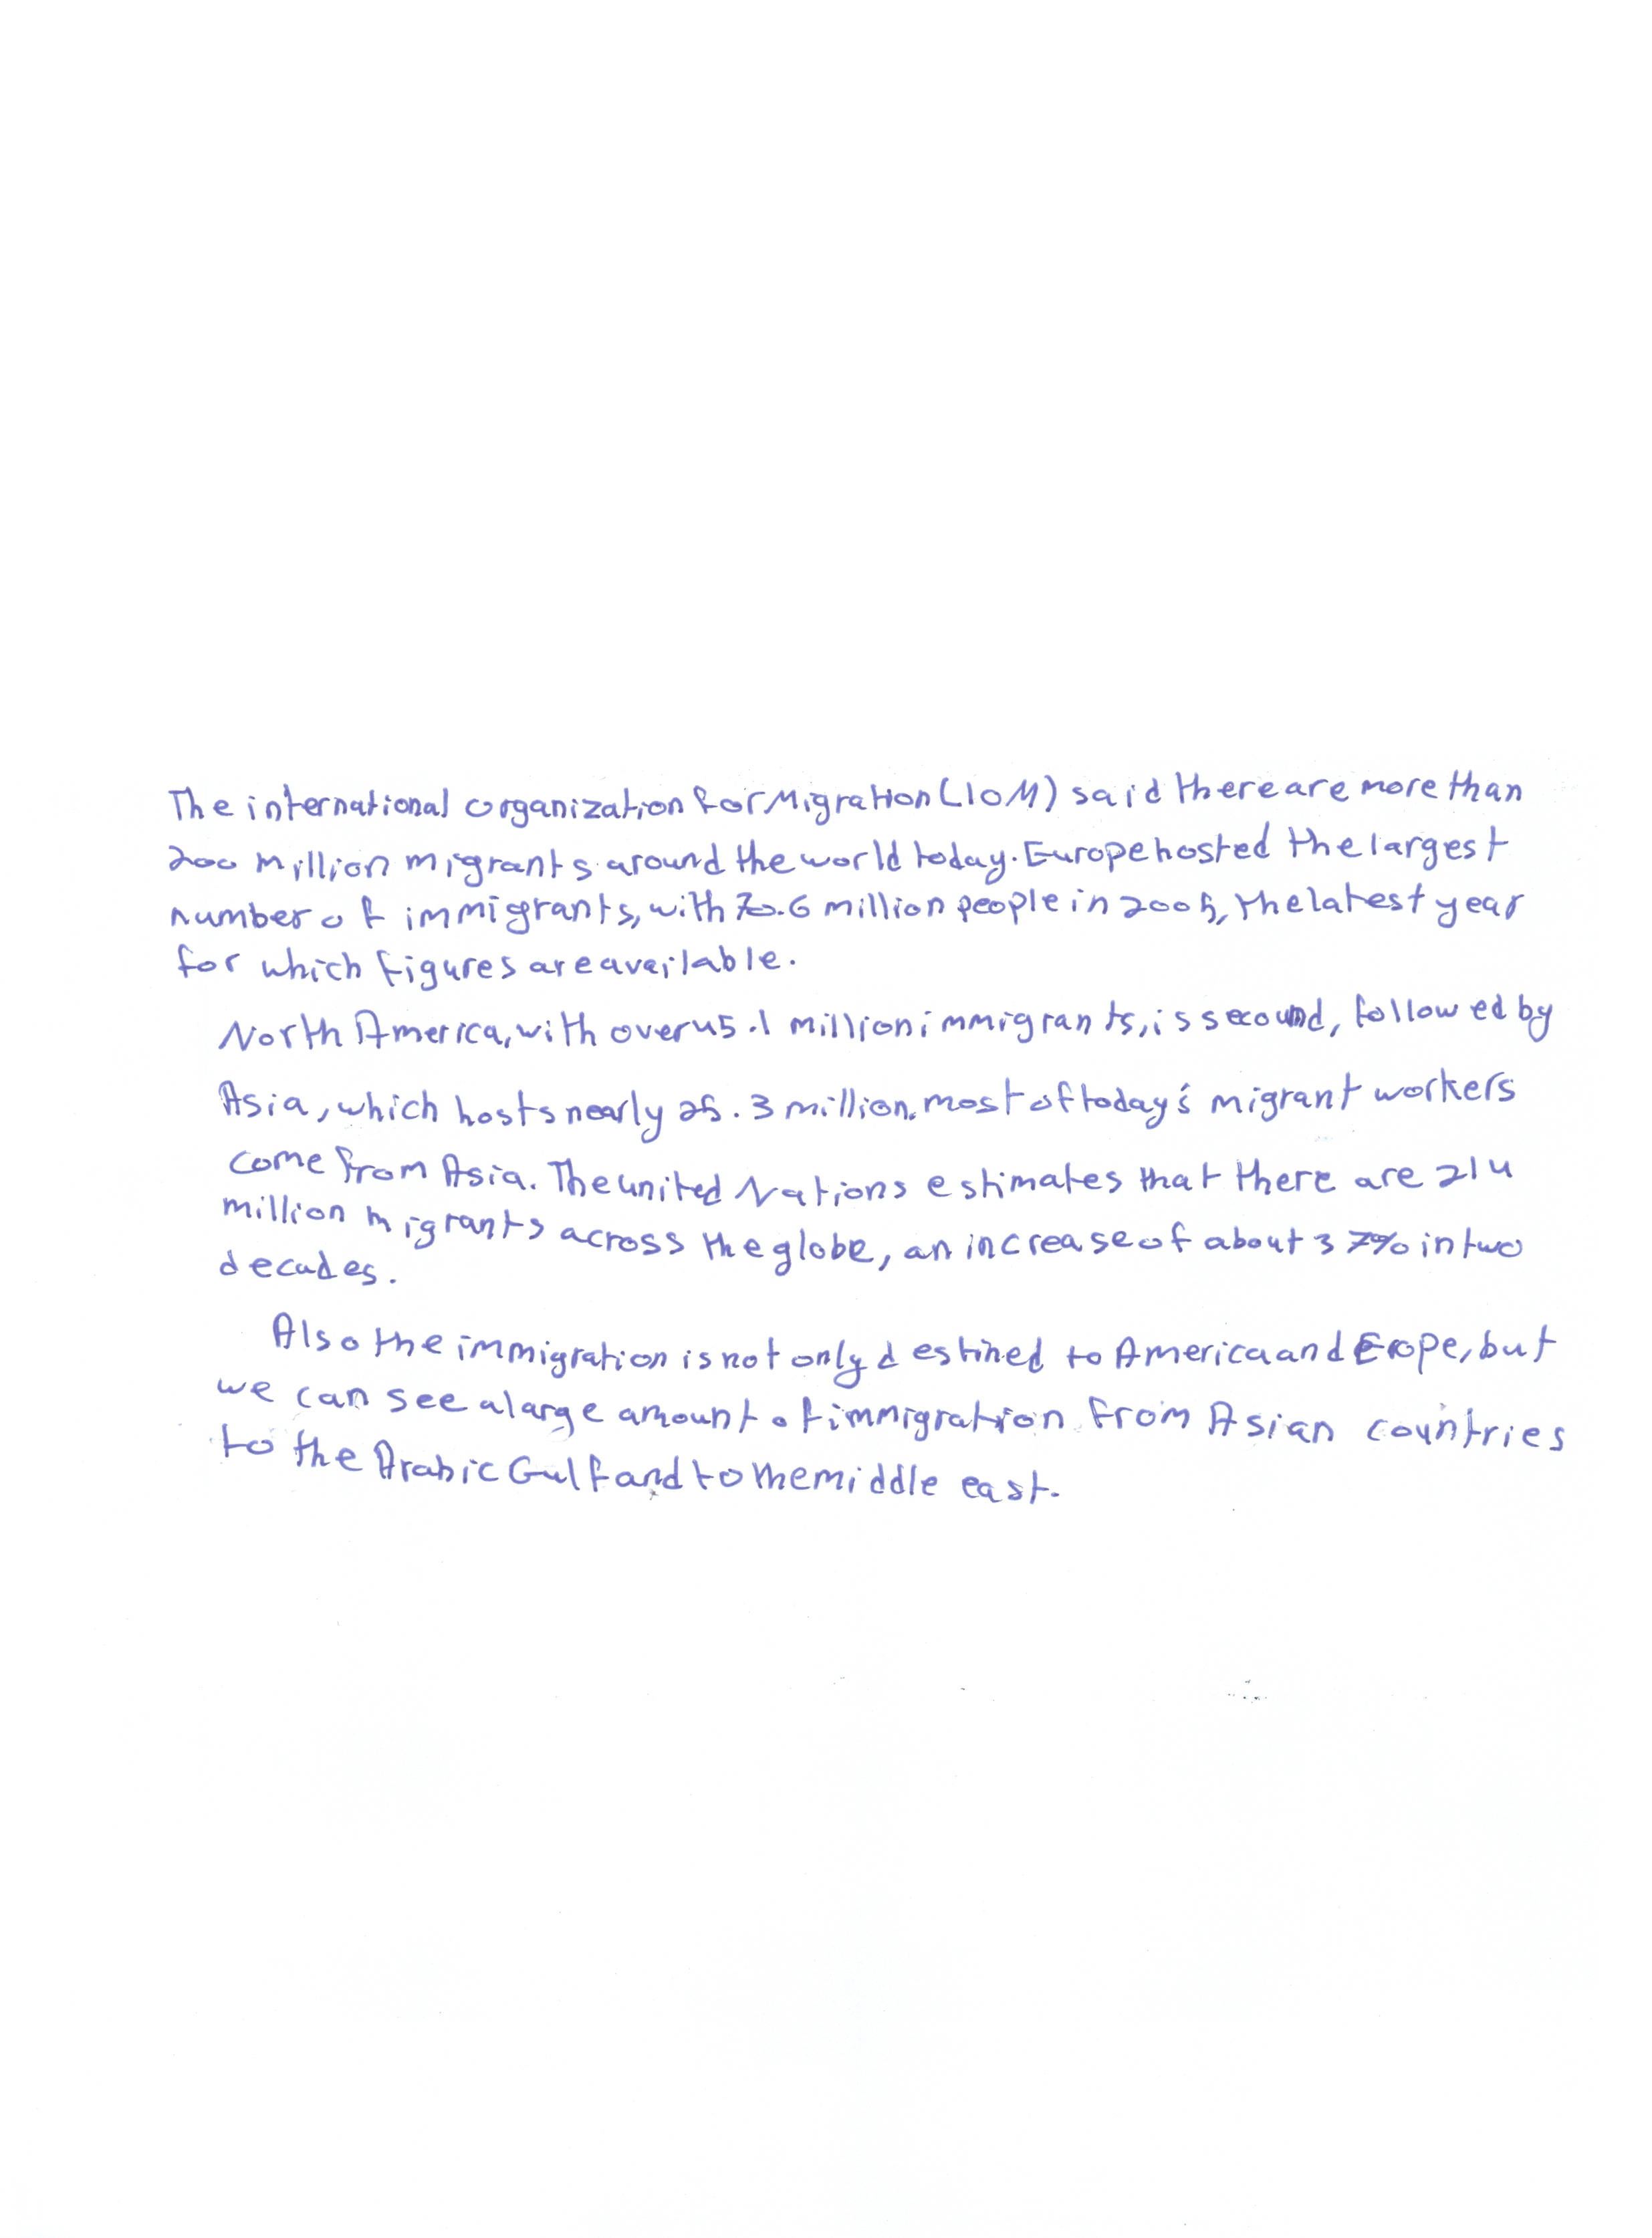 The international organization for Migration (IOM) said there are more than
200 million migrants around the world today. Europe hosted the largest
number of immigrants, with 70.6 million people in 2005, the latest year
for which figures are available.
North America, with over 45.1 million immigrants, is secound, followed by
Asia, which hosts nearly 25.3 million. most of today's migrant workers
come from Asia. The united Nations estimates that there are 214
million migrants across the globe, an increase of about 37% in two
decades.
Also the immigration is not only destined to America and Erope, but
we can see a large amount of immigration from Asian countries
to the Arabic Gulf and to the middle east.